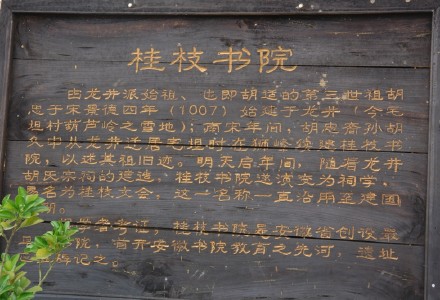 桂枝书院
由龙井派始祖、也即胡适的第三世祖胡
忠于宋景德四年（1007）始建于龙井（今宅
坦村葫芦岭之雪地）；南宋年间，胡
大中从龙井迁居宅坦时在狮岭
院，以述其祖旧迹。明天启年间，随着龙井
胡氏宗祠的建造，桂枝书院遂演变为祠学，
名为桂枝文会，这一名称一直沿用至建国
学者考证，桂枝书院是安徽省创设最
书院，首开安徽书院教育之先河，遗址
碑记之。